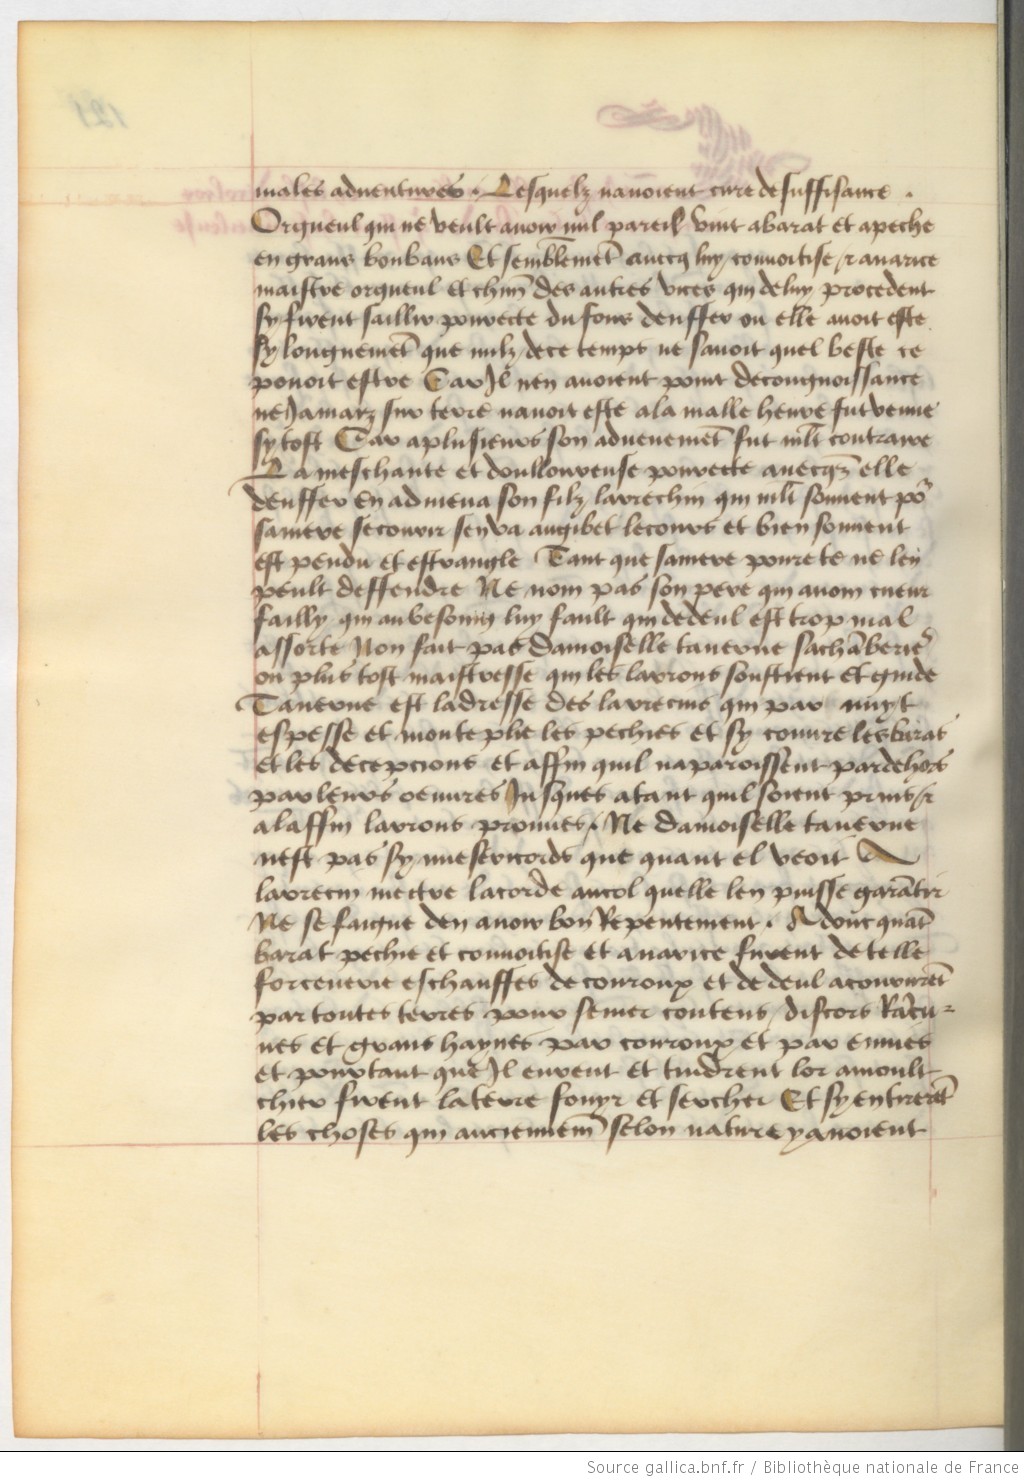 males aduentures . Lesquelz nauoient cure de suffisance .
Orgueul qui ne veult auoir nul pareil vint abarat et apeche
en grans bonbans Et semblemēt auecq luy couuoitise / et auarice
maistre orgueul et chūn des autres vices qui deluy procedent
sy firent saillir pourete du fons denffer ou elle auoit este
sy longuemēt que nulz dece temps ne sauoit quel beste ce
pouoit estre Car Jl nen auoient point decongnoissance
ne Jamaiz sur terre nauoit este ala malle heure fut venue
sy tost Car aplusieurs son aduenemēt fut ml̄t contraire
La meschante et doulloureuse pourette auecqz elle
denffer en admena son filz larrechin qui ml̄t souuent po͛
samere secourir senva augibet lecours et bien souuent
est pendu et estrangle Tant que samere pourete ne len
peult deffendre Ne nom pas son pere qui auom cueur
failly qui aubesoing luy fault qui dedeul est trop mal
assorte Non fait pas damoiselle tauerne sachāberie͛
ou plus tost maistresse qui les larrons soustient et guide
Tauerne est ladresse des larrecins qui par nuyt
espesse et monteplie les pechies et sy couure les baras
et les decepcions et affin quil naparoissent pardehors
par leurs oeuures Jusques atant quil soient prins / et
alaffin larrons prouues . Ne damoiselle tauerne
nest pas sy misericords que quant el veoit
larrecin mectre lacorde aucol quelle len puisse garātir
Ne se faigne den auoir bon Repentement . Adonc quāt
barat pechie et couuoitise et auarice furent de telle
forcenerie eschauffes de couroux et de deul acoururēt
par toutes terres pour semer contens / discors Rācu=
nes et grans haynes par couroux et par enuies
et pourtant que Jl eurent et tindrent lor amoult
chier firent laterre fouyr et sercher Et sy entirerēt
les choses qui anciennem̄ selon nature yauoient
Source gallica.bnf.fr / Bibliothèque nationale de France